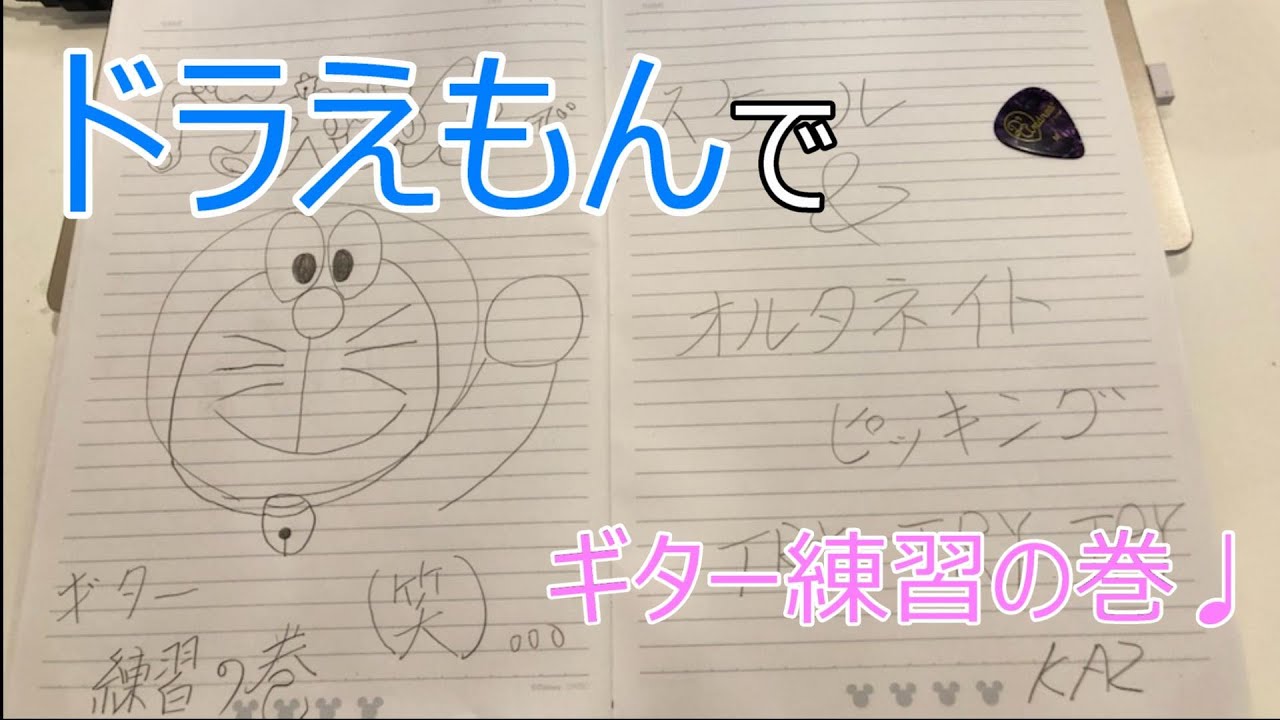 ドラえもんで
スケール
&
オルタネイト
ピッキング
TRY TRY TRY
ギター練習の巻♩
ギター
練習の巻
(笑)...
KAZ